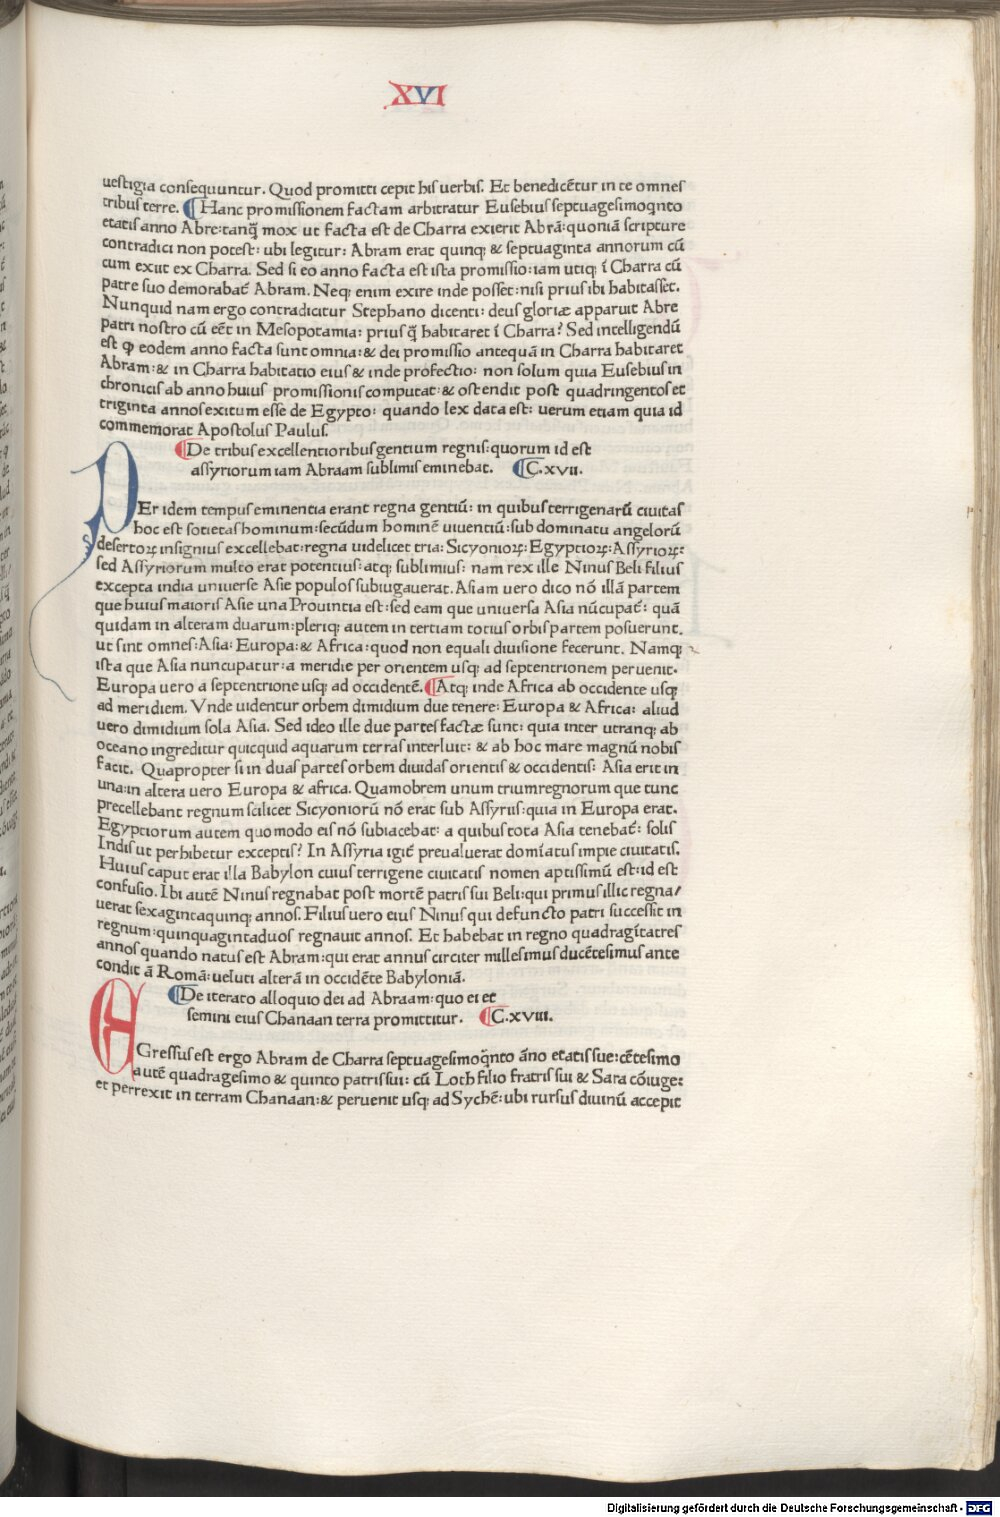 XVI
uestigia consequuntur. Quod promitti cepit his uerbis. Et benedicẽtur in te omnes
tribus terre. ¶ Hanc promissionem factam arbitratur Eusebius septuagesimoq̃nto
etatis anno Abre: tanq̃ mox ut facta est de Charra exierit Abrã: quoniã scripture
contradici non potest: ubi legitur: Abram erat quinq; & septuaginta annorum cũ
cum exiit ex Charra. Sed si eo anno facta est ista promissio: iam utiq; ĩ Charra cũ
patre suo demorabat̃ Abram. Neq; enim exire inde posset: nisi prius ibi habitasset.
Nunquid nam ergo contradicitur Stephano dicenti: deus gloriæ apparuit Abre
patri nostro cũ eẽt in Mesopotamia: prius q̃ habitaret ĩ Charra? Sed intelligendũ
est ꝙ eodem anno facta sunt omnia: & dei promissio antequã in Charra habitaret
Abram: & in Charra habitatio eius & inde profectio: non solum quia Eusebius in
chronicis ab anno huius promissionis computat: & ostendit post quadringentos et
triginta annos exitum esse de Egypto: quando lex data est: uerum etiam quia id
commemorat Apostolus Paulus.
¶ De tribus excellentioribus gentium regnis: quorum id est
assyriorum iam Abraam sublimis eminebat. ¶ C.xvii.
PEr idem tempus eminentia erant regna gentiũ: in quibus terrigenarũ ciuitas
hoc est societas hominum: secũdum hominẽ uiuentiũ: sub dominatu angelorũ
desertoꝝ insignius excellebat: regna uidelicet tria: Sicyonioꝝ: Egyptioꝝ: Assyrioꝝ:
sed Assyriorum multo erat potentius: atq; sublimius: nam rex ille Ninus Beli filius
excepta india uniuerse Asie populos subiugauerat. Asiam uero dico nõ illã partem
que huius maioris Asie una Prouintia est: sed eam que uniuersa Asia nũcupat̃: quã
quidam in alteram duarum: pleriq; autem in tertiam totius orbis partem posuerunt.
ut sint omnes: Asia: Europa: & Africa: quod non equali diuisione fecerunt. Namq;
ista que Asia nuncupatur: a meridie per orientem usq; ad septentrionem peruenit.
Europa uero a septentrione usq; ad occidentẽ. ¶ Atq; inde Africa ab occidente usq;
ad meridiem. Vnde uidentur orbem dimidium due tenere: Europa & Africa: aliud
uero dimidium sola Asia. Sed ideo ille due partes factæ sunt: quia inter utranq; ab
oceano ingreditur quicquid aquarum terras interluit: & ab hoc mare magnũ nobis
facit. Quapropter si in duas partes orbem diuidas orientis & occidentis: Asia erit in
una: in altera uero Europa & africa. Quamobrem unum trium regnorum que tunc
precellebant regnum scilicet Sicyoniorũ nõ erat sub Assyriis: quia in Europa erat.
Egyptiorum autem quomodo eis nõ subiacebat: a quibus tota Asia tenebat̃: solis
Indis ut perhibetur exceptis? In Assyria igit̃ preualuerat domĩatus impie ciuitatis.
Huius caput erat illa Babylon cuius terrigene ciuitatis nomen aptissimũ est: id est
confusio. Ibi autẽ Ninus regnabat post mortẽ patris sui Beli: qui primus illic regna/
uerat sexagintaquinq; annos. Filius uero eius Ninus qui defuncto patri successit in
regnum: quinquagintaduos regnauit annos. Et habebat in regno quadragĩtatres
annos quando natus est Abram: qui erat annus circiter millesimus ducẽtesimus ante
conditã Romã: ueluti alterã in occidẽte Babyloniã.
¶ De iterato alloquio dei ad Abraam: quo ei et
semini eius Chanaan terra promittitur. ¶ C.xviii.
EGressus est ergo Abram de Charra septuagesimoq̃nto ãno etatis sue: cẽtesimo
autẽ quadragesimo & quinto patris sui: cũ Loth filio fratris sui & Sara cõiuge:
et perrexit in terram Chanaan: & peruenit usq; ad Sychẽ: ubi rursus diuinũ accepit
Digitalisierung gefördert durch die Deutsche Forschungsgemeinschaft - DFG